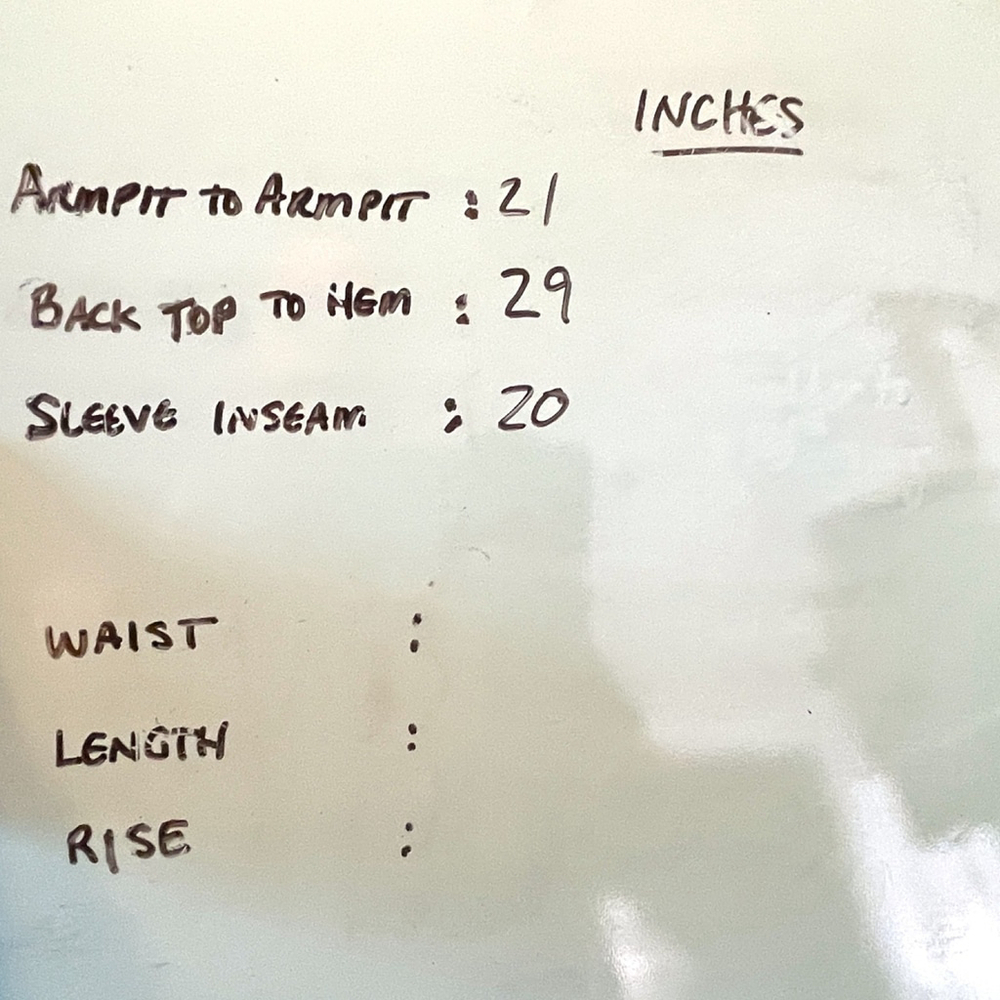 INCHES
ARMPIT TO ARMPIT : 21
BACK TOP TO HEM : 29
SLEEVE INSEAM : 20
WAIST :
LENGTH :
RISE :